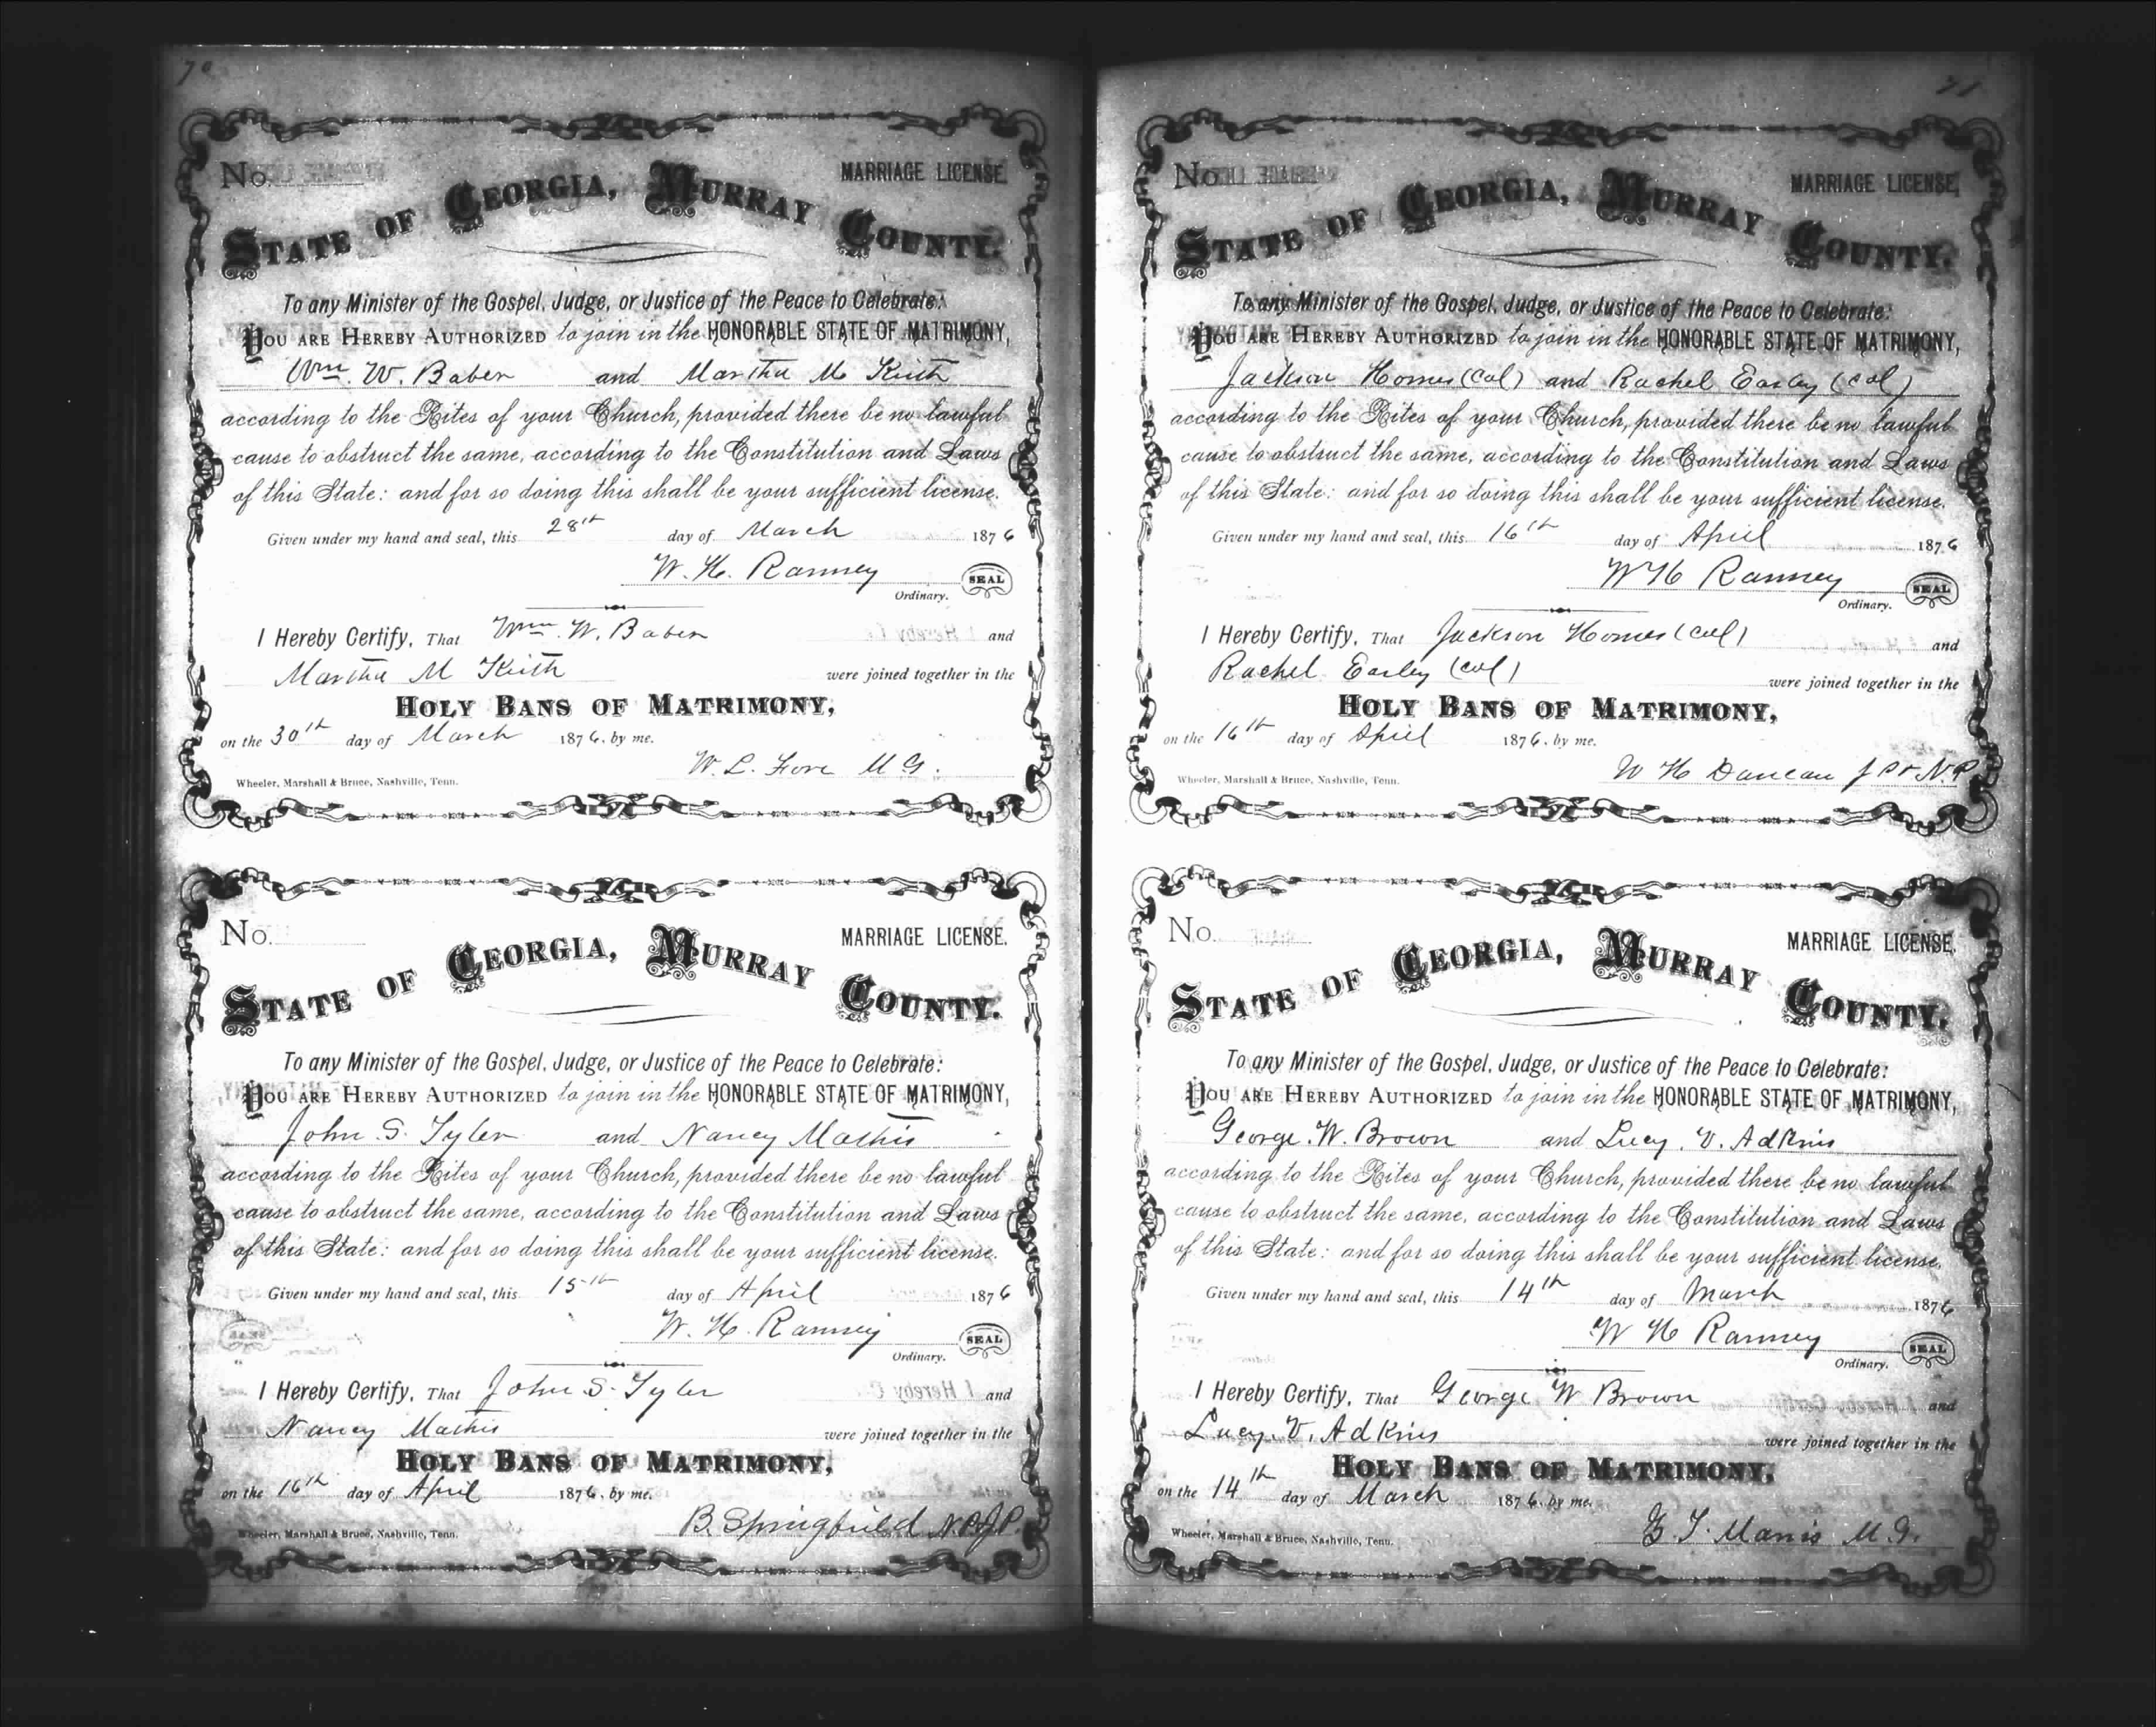 70
No.
MARRIAGE LICENSE.
STATE OF GEORGIA, MURRAY COUNTY.
To any Minister of the Gospel, Judge, or Justice of the Peace to Celebrate:
YOU ARE HEREBY AUTHORIZED to join in the HONORABLE STATE OF MATRIMONY,
Wm. W. Baber and Martha M Keith
according to the Rites of your Church, provided there be no lawful
cause to obstruct the same, according to the Constitution and Laws
of this State: and for so doing this shall be your sufficient license.
Given under my hand and seal, this 28th day of March 1876
W. H. Ramsey SEAL
Ordinary.
I Hereby Certify, That Wm. W. Baber and
Martha M Keith were joined together in the
HOLY BANS OF MATRIMONY,
on the 30th day of March 1876. by me.
W. L. Fore M G.
Wheeler, Marshall & Bruce, Nashville, Tenn.
No.
MARRIAGE LICENSE.
STATE OF GEORGIA, MURRAY COUNTY.
To any Minister of the Gospel, Judge, or Justice of the Peace to Celebrate:
YOU ARE HEREBY AUTHORIZED to join in the HONORABLE STATE OF MATRIMONY,
John S. Tyler and Nancy Mathis
according to the Rites of your Church, provided there be no lawful
cause to obstruct the same, according to the Constitution and Laws
of this State: and for so doing this shall be your sufficient license.
Given under my hand and seal, this 15th day of April 1876
W. H. Ramsey SEAL
Ordinary.
I Hereby Certify, That John S. Tyler and
Nancy Mathis were joined together in the
HOLY BANS OF MATRIMONY,
on the 16th day of April 1876. by me.
B. Springfield N.P.&J.P.
Wheeler, Marshall & Bruce, Nashville, Tenn.
71
No.
MARRIAGE LICENSE.
STATE OF GEORGIA, MURRAY COUNTY.
To any Minister of the Gospel, Judge, or Justice of the Peace to Celebrate:
YOU ARE HEREBY AUTHORIZED to join in the HONORABLE STATE OF MATRIMONY,
Jackson Homes (Col) and Rachel Earley (Col)
according to the Rites of your Church, provided there be no lawful
cause to obstruct the same, according to the Constitution and Laws
of this State: and for so doing this shall be your sufficient license.
Given under my hand and seal, this 16th day of April 1876
W H Ramsey SEAL
Ordinary.
I Hereby Certify, That Jackson Homes (Col) and
Rachel Earley (Col) were joined together in the
HOLY BANS OF MATRIMONY,
on the 16th day of April 1876. by me.
W H Duncan J P & N.P.
Wheeler, Marshall & Bruce, Nashville, Tenn.
No.
MARRIAGE LICENSE.
STATE OF GEORGIA, MURRAY COUNTY.
To any Minister of the Gospel, Judge, or Justice of the Peace to Celebrate:
YOU ARE HEREBY AUTHORIZED to join in the HONORABLE STATE OF MATRIMONY,
George. W. Brown and Lucy. V. Adkins
according to the Rites of your Church, provided there be no lawful
cause to obstruct the same, according to the Constitution and Laws
of this State: and for so doing this shall be your sufficient license.
Given under my hand and seal, this 14th day of March 1876
W H Ramsey SEAL
Ordinary.
I Hereby Certify, That George W Brown and
Lucy. V. Adkins were joined together in the
HOLY BANS OF MATRIMONY,
on the 14th day of March 1876. by me.
T. Manis M.G.
Wheeler, Marshall & Bruce, Nashville, Tenn.